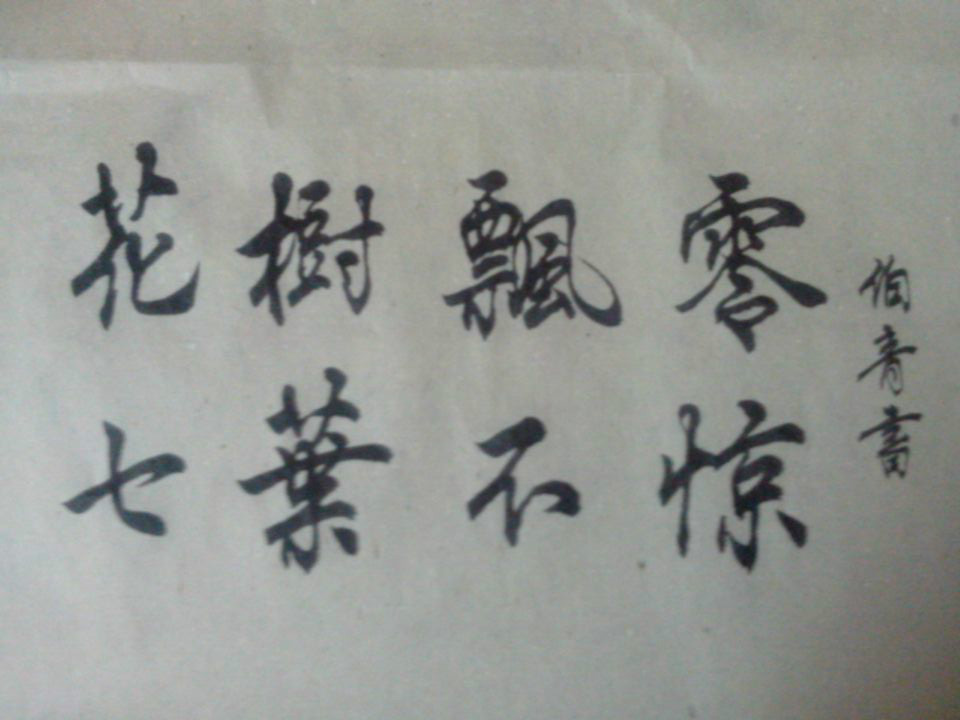 花樹飄零
七葉不惊
伯青書